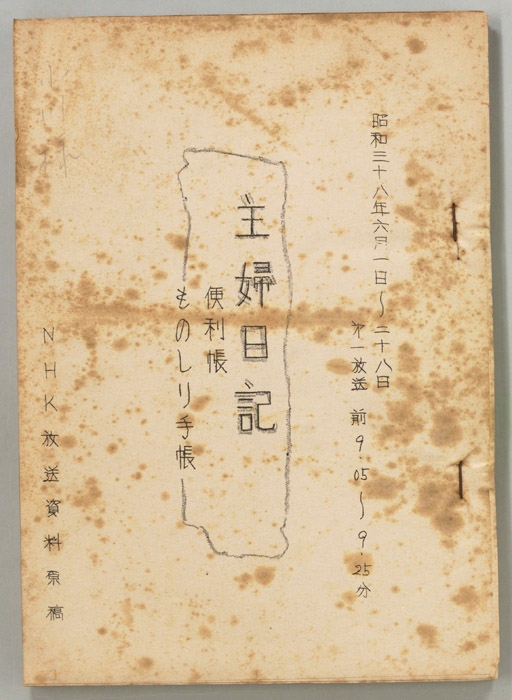 昭和三十八年六月一日～二十八日
第一放送 前9.05～9.25分
主婦日記
便利帳
ものしり手帳
NHK放送資料原稿